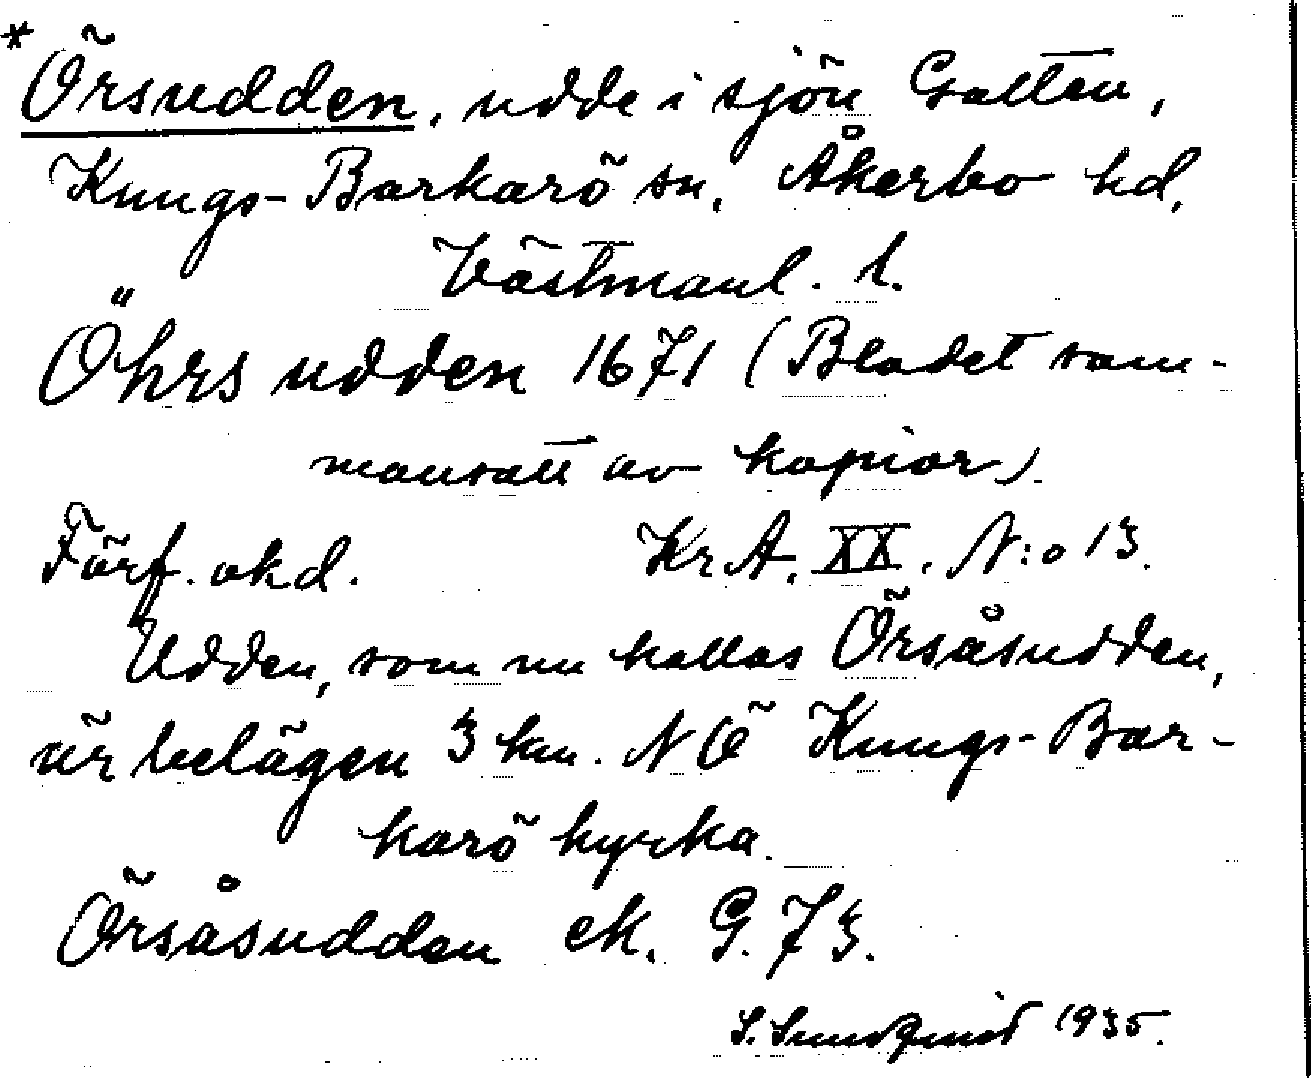 *Örsudden, udde i sjön Galten,
Kungs-Barkarö sn, Åkerbo hd,
Västmanl. l.
Öhrs udden 1671 (Bladet sam-
mansatt av kopior).
Förf. okd. KrA. XX. N:o 13.
Udden, som nu kallas Örsåsudden,
är belägen 3 km. NÖ Kungs-Bar-
karö kyrka.
Örsåsudden ek. G. 73.
S. Sundqvist 1935.